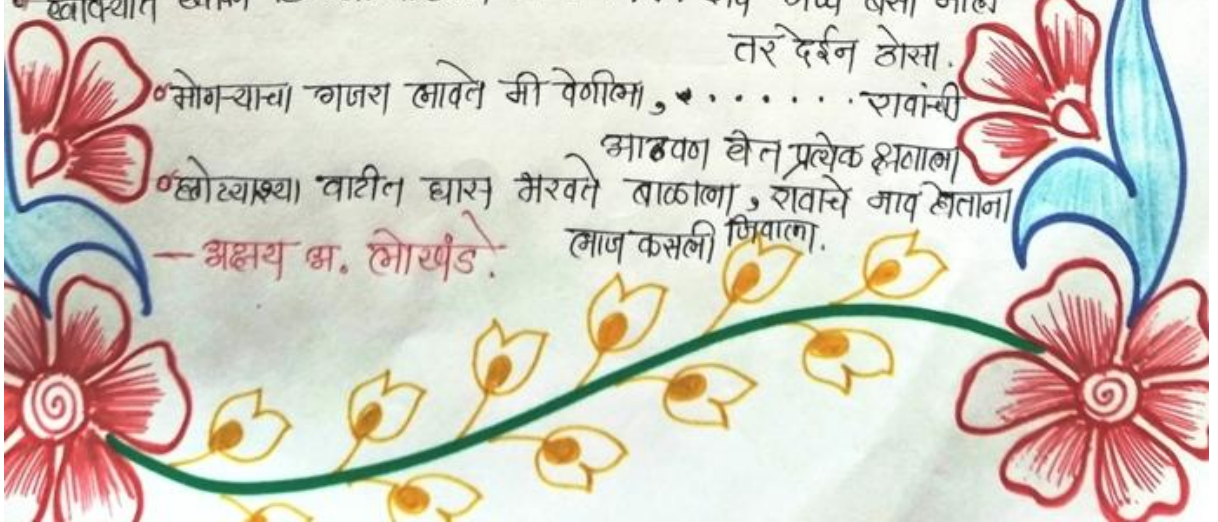 तर देईन ठोसा.
मोगऱ्याचा गजरा लावते मी वेणीला, . . . . . . . रावांची
आठवण येते प्रत्येक क्षणाला
छोट्याश्या वाटीत घास भरवते बाळाला, रावाचे नाव घेताना
लाज कसली जिवाला.
– अक्षय भ. लोखंडे.